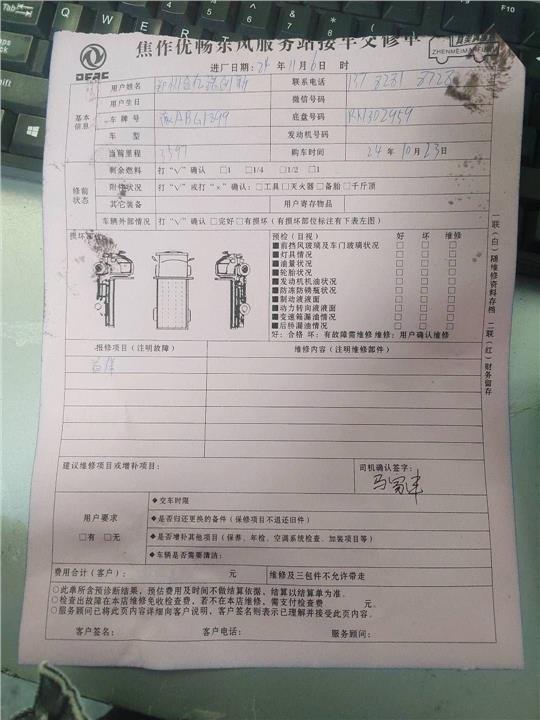 焦作优畅东风服务站接车交修单
DFAC
ZHENMEIMAIFUWU
进厂日期：24 年 11 月 6 日 时
用户姓名 联系电话
用户生日 微信号码
基本信息 车牌号 ABG1399 底盘号码 RN302959
车 型 发动机号码
当前里程 3397 购车时间 24 年 10 月 23 日
修前状态 剩余燃料 打“√”确认 □1 □1/4 □1/2 □1
附件状况 打“√”或打“×”确认：□工具□灭火器□备胎□千斤顶
其它装备 用户寄存物品
车辆外部情况 打“√”确认 □完好□有损坏（有损坏部位标注有下表左图）
预检（目视） 好 坏 维修
■前挡风玻璃及车门玻璃状况 □ □ □
■灯具情况 □ □ □
■油量状况 □ □ □
■轮胎状况 □ □ □
■发动机机油状况 □ □ □
■防冻防锈瓶状况 □ □ □
■制动液液面 □ □ □
■动力转向液液面 □ □ □
■变速箱漏油情况 □ □ □
■后桥漏油情况 □ □ □
好：合格 坏：有故障需维修 维修：用户确认维修
报修项目（注明故障） 维修内容（注明维修部件）
首保
建议维修项目或增补项目： 司机确认签字：
用户要求
□有 □无
◆交车时限
◆是否归还更换的备件（保修项目不退还旧件）
◆是否增补其他项目（保养、年检、空调系统检查、加装项目等）
◆车辆是否需要清洁：
费用合计（客户）： 元 维修及三包件不允许带走
○此单所含预诊断结果，预估费用及时间不做结算依据，结算以结算单为准。
○检查出故障在本店维修免收检查费，若不在本店维修，需支付检查费 元。
○服务顾问已将此页内容详细向客户说明，客户签名则表示已理解并接受此页内容。
客户签名： 客户电话： 服务顾问：
一联（白）随维修资料存档 二联（红）财务留存